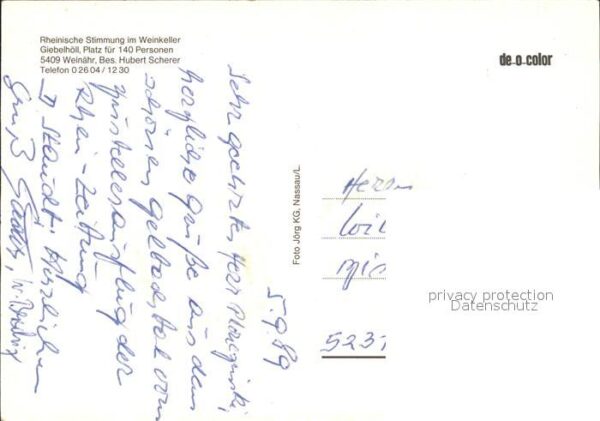 Rheinische Stimmung im Weinkeller
Giebelhöll, Platz für 140 Personen
5409 Weinähr, Bes. Hubert Scherer
Telefon 0 26 04 / 12 30
de-o-color
Foto Jörg KG, Nassau/L.
5.9.89
Sehr geehrter Herr
herzliche Grüße aus dem
schönen Gelbachtal vom
der
Rhein-Zeitung
Staudt. Herzlichen
Gruß
Herrn
Wil
5231
privacy protection
Datenschutz